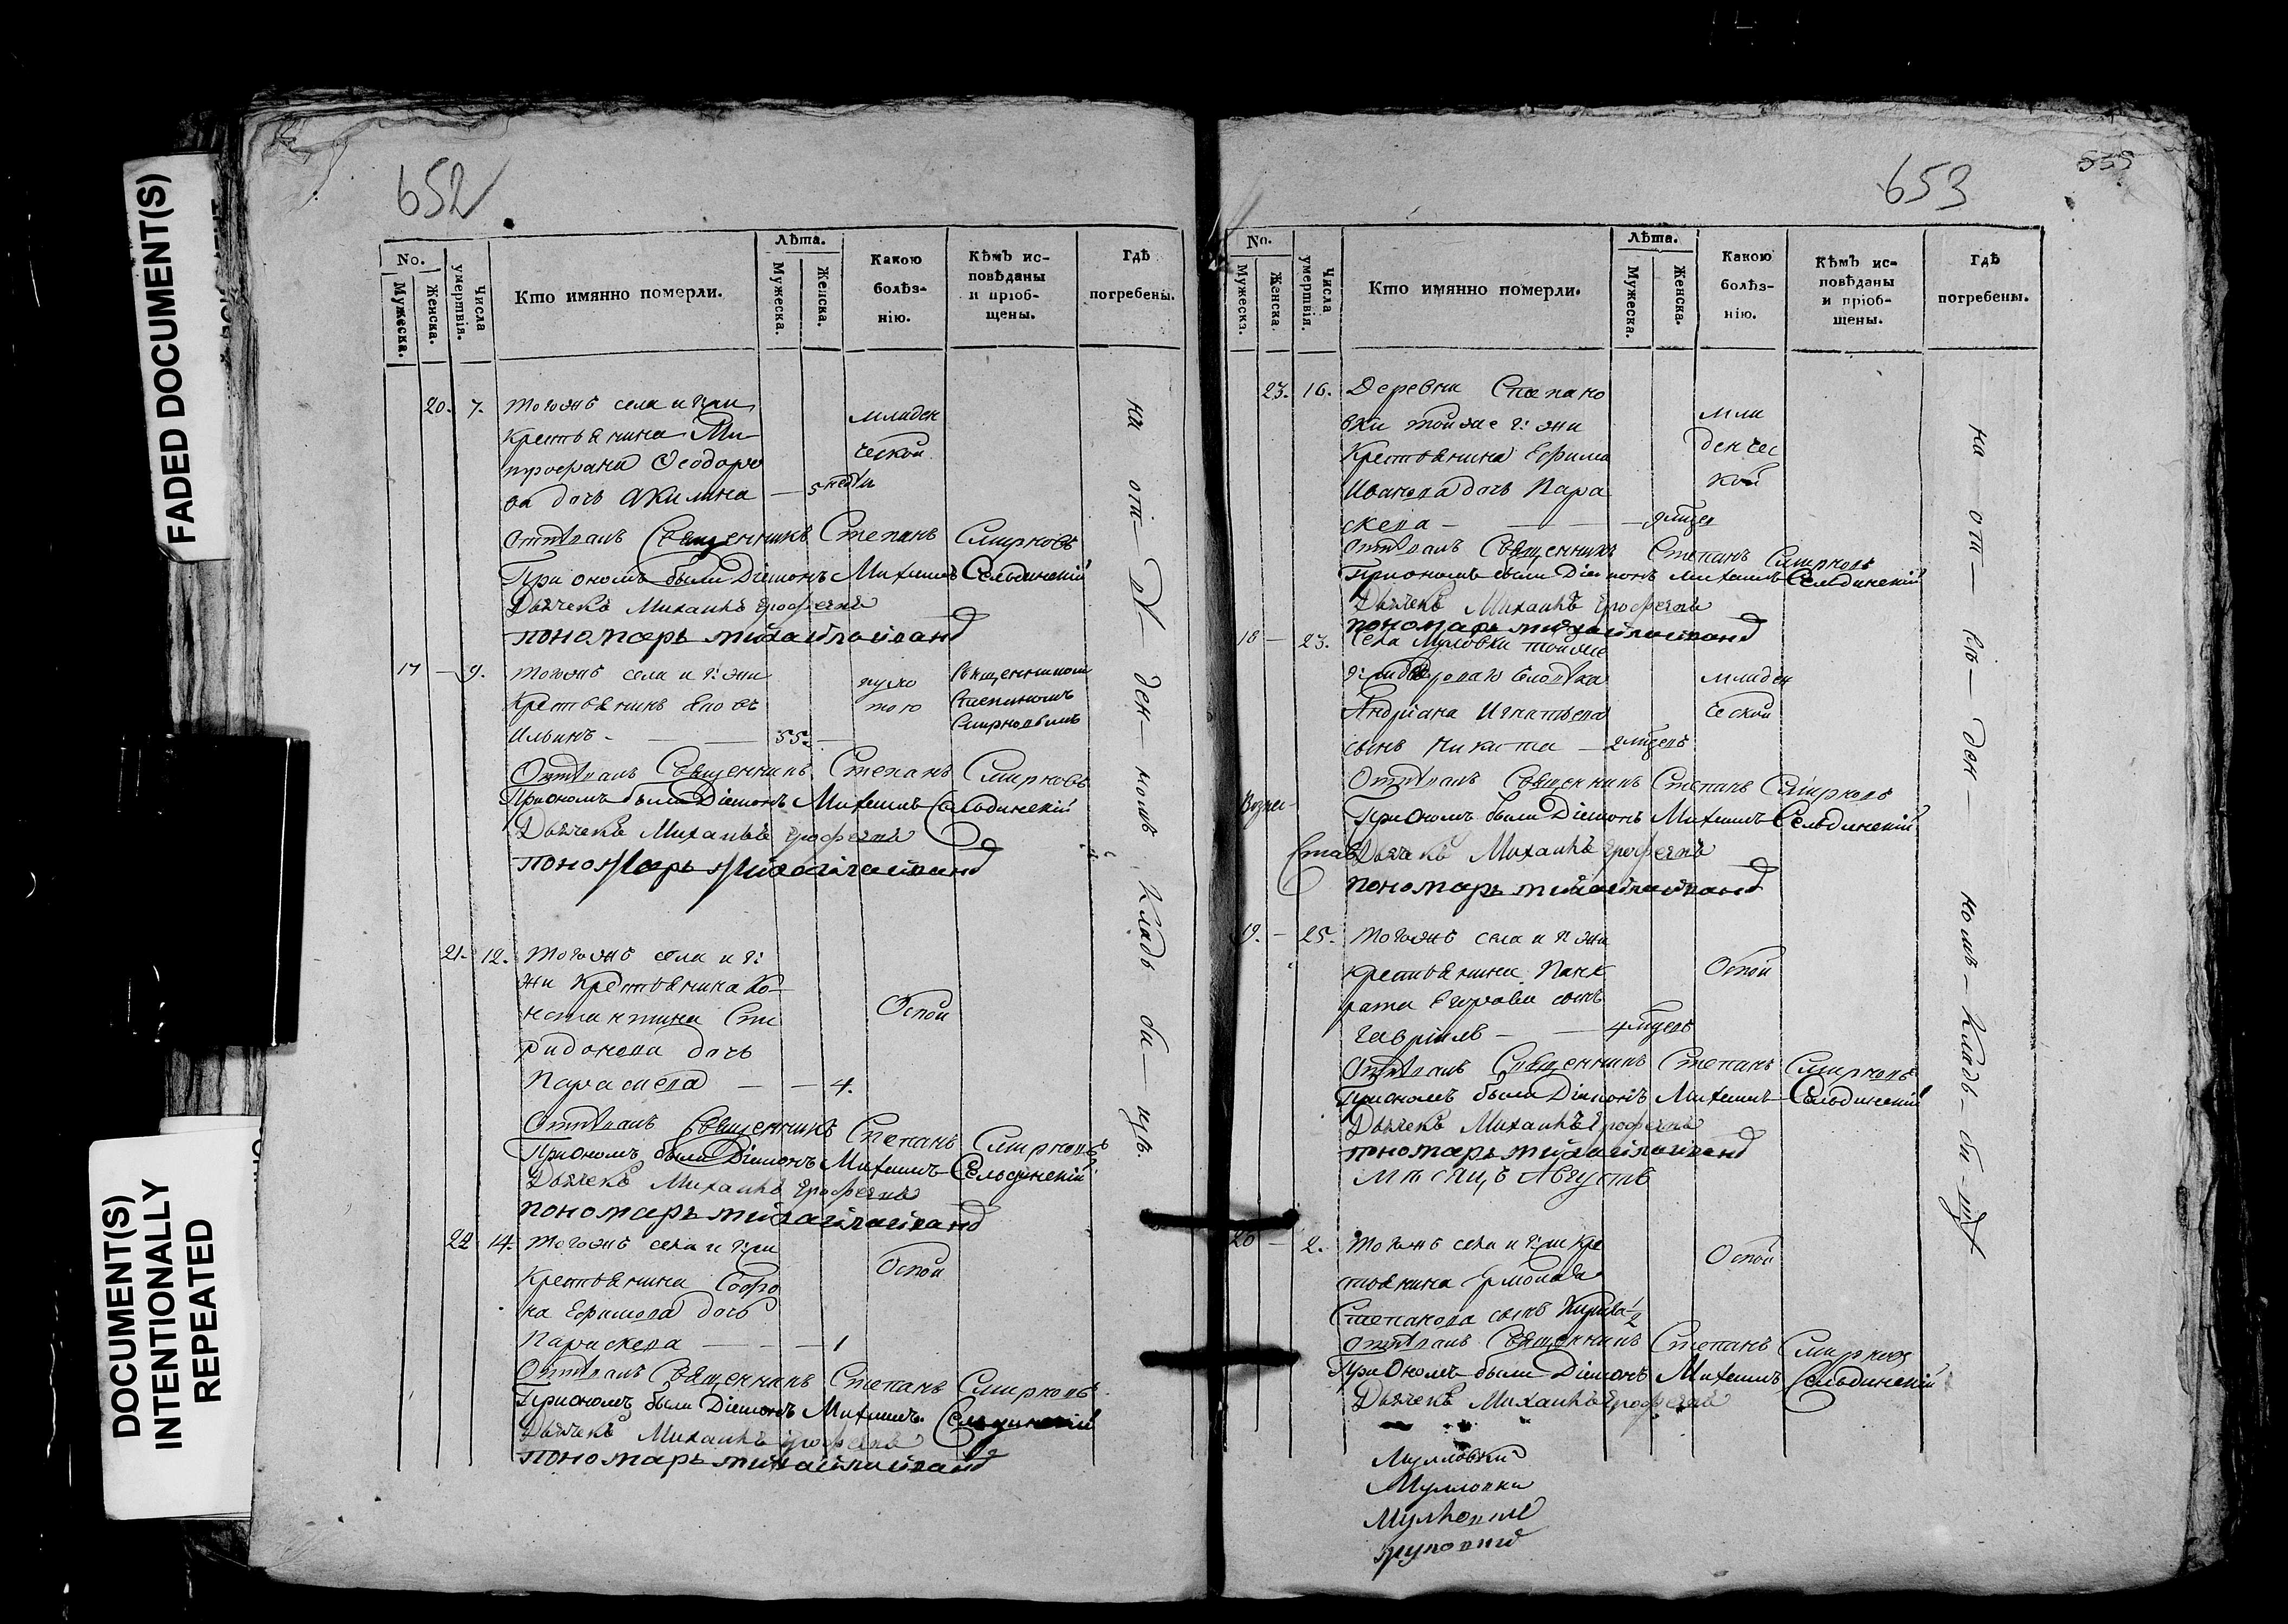 FADED DOCUMENT(S)
DOCUMENT(S)
INTENTIONALLY
REPEATED
652
No.
Мужеска.
Женска.
Числа умертвія.
Кто имянно померли.
Лѣта.
Мужеска.
Женска.
Какою болѣз-
нію.
Кѣмъ ис-
повѣданы
и пріоб-
щены.
Гдѣ
погребены.
20. 7. тогожъ села и
крестьянина Ми младен
трофана Ѳеодоро ческой
ва дочь Акилина — 5 недѣл
Отпѣвалъ Священникъ Степанъ Смирновъ
При ономъ были Діаконъ Михаилъ Сельдинскій
Дьячекъ Михаилъ Ерофеевъ
пономарь михаила иванд
17 — 9. тогожъ села и Священникомъ
Крестьянинъ Степаномъ
Ильинъ — 55. — Смирновымъ
Отпѣвалъ Священникъ Степанъ Смирновъ
При ономъ были Діаконъ Михаилъ Сельдинскій
Дьячекъ Михаилъ Ерофеевъ
пономарь михаила иванд
21. 12. тогожъ села и
жи Крестьянина Ко-
нстантина Спи Оспой
ридонова дочь
Параскева — — 4.
Отпѣвалъ Священникъ Степанъ Смирновъ
При ономъ были Діаконъ Михаилъ Сельдинскій
Дьячекъ Михаилъ Ерофеевъ
пономарь михаила иванд
22 14. тогожъ села и
Крестьянина Софро Оспой
на Ефимова дочь
Параскева — — 1
Отпѣвалъ Священникъ Степанъ Смирновъ
При ономъ были Діаконъ Михаилъ Сельдинскій
Дьячекъ Михаилъ Ерофеевъ
пономарь михаила иванд
на от— ден— номъ кладъ би— щѣ.
653
No.
Мужеска.
Женска.
Числа умертвія.
Кто имянно померли.
Лѣта.
Мужеска.
Женска.
Какою
болѣз-
нію.
Кѣмъ ис-
повѣданы
и пріоб-
щены.
Гдѣ
погребены.
23. 16. Деревни Степано
вки тойже мла
Крестьянина Ефима денчес
Иванова дочь Пара кой
скева — — — 9 мцов
Отпѣвалъ Священникъ Степанъ Смирновъ
При ономъ были Діаконъ Михаилъ Сельдинскій
Дьячекъ Михаилъ Ерофеевъ
пономарь михаила иванд
18 — 23. Села Муловки тойже
младен
Андріана Игнатьева ческой
сынъ Никита — 2 мцовъ
Отпѣвалъ Священникъ Степанъ Смирновъ
При ономъ были Діаконъ Михаилъ Сельдинскій
Дьячекъ Михаилъ Ерофеевъ
пономарь михаила иванд
19. — 25. тогожъ села и
крестьянина Панк Оспой
рата Егорова сынъ
Гавріилъ — — 4 мцовъ
Отпѣвалъ Священникъ Степанъ Смирновъ
При ономъ были Діаконъ Михаилъ Сельдинскій
Дьячекъ Михаилъ Ерофеевъ
пономарь михаила иванд
Мѣсяцъ Августъ
20 — 2. тогожъ села и кре
стьянина Ермолая Оспой
Степанова сынъ 1/2
Отпѣвалъ Священникъ Степанъ Смирновъ
При ономъ были Діаконъ Михаилъ Сельдинскій
Дьячекъ Михаилъ Ерофеевъ
Муловки
Муловки
на от— ден— номъ— кладъ— би— щѣ